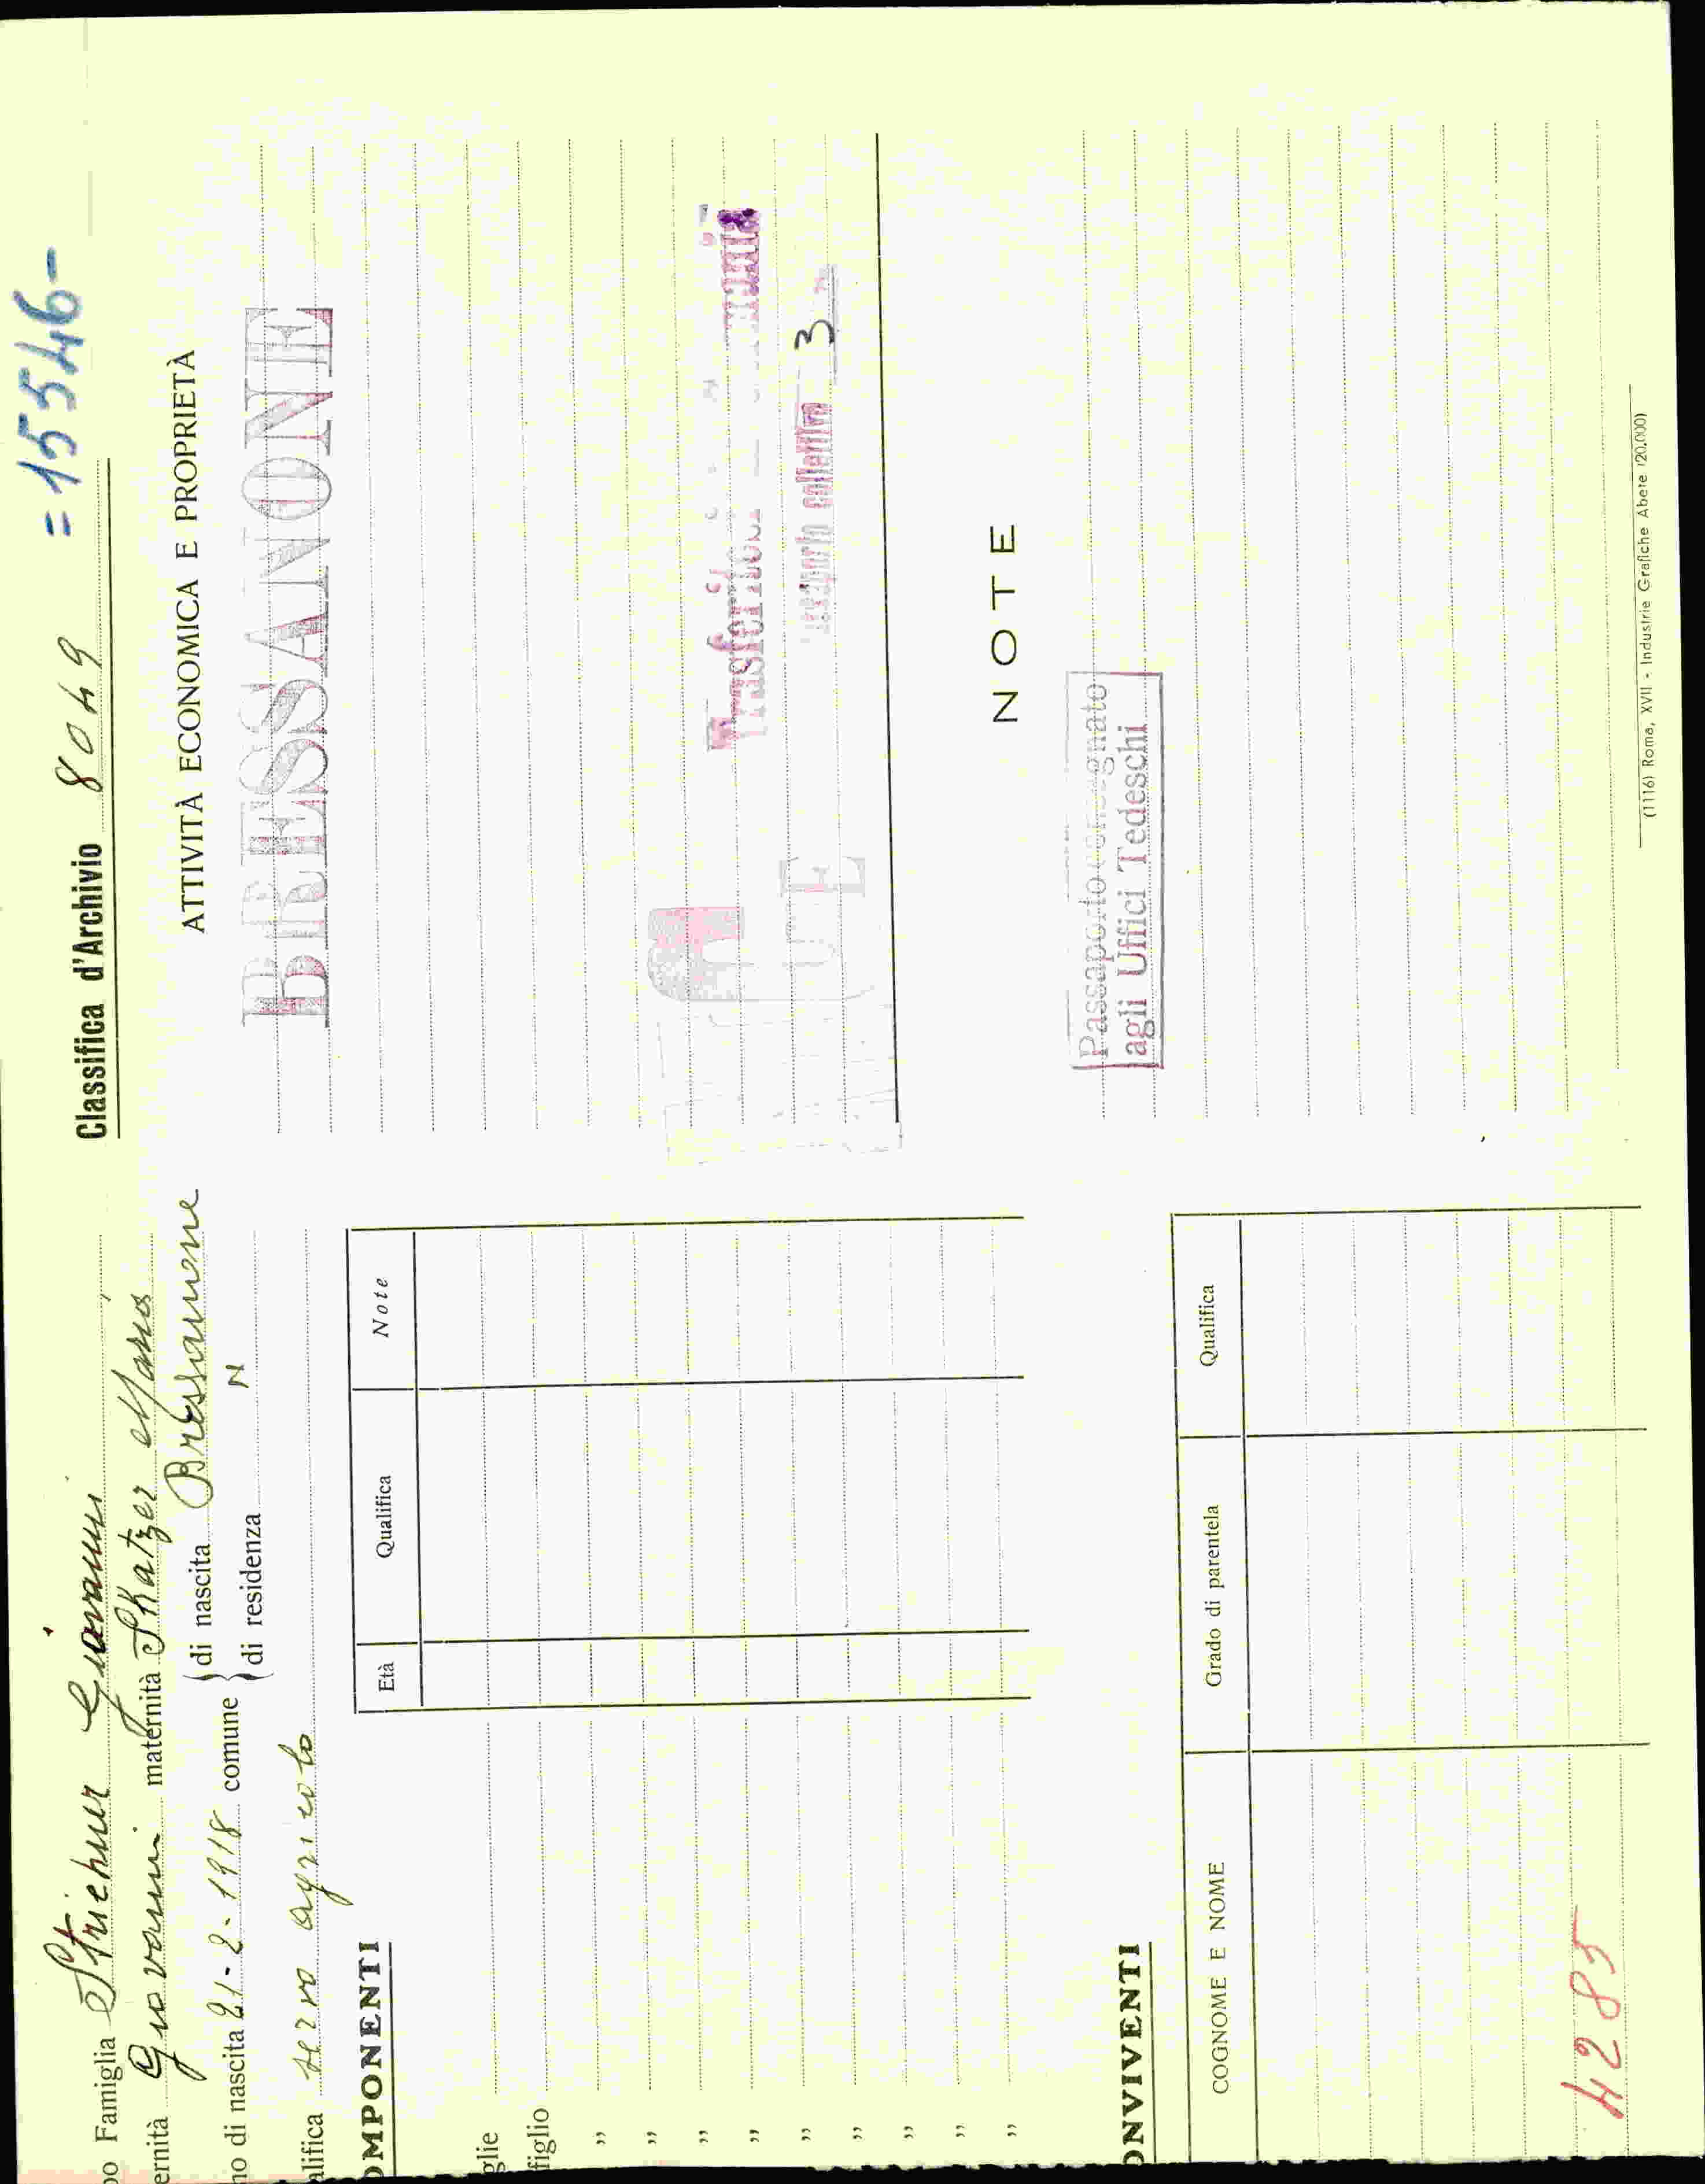 = 15546 -
Classifica d'Archivio 8049
po Famiglia Striehur Giovanni
ernità Giovanni maternità Skatzer Maria
no di nascita 21-2-1918 comune { di nascita Bressanone
{ di residenza N
alifica servo agricolo
OMPONENTI
Età Qualifica Note
glie
figlio
”
”
”
”
”
”
”
”
”
ONVIVENTI
COGNOME E NOME Grado di parentela Qualifica
4285
ATTIVITÀ ECONOMICA E PROPRIETÀ
BRESSANONE
Trasferitosi
collettivo 3
NOTE
Passaporto consegnato
agli Uffici Tedeschi
(1116) Roma, XVII - Industrie Grafiche Abete (20.000)